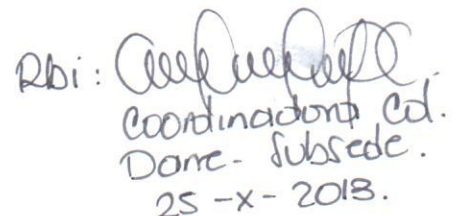 Rbi:
Coordinadora Col.
Dane - Subsede.
25 -X- 2013.